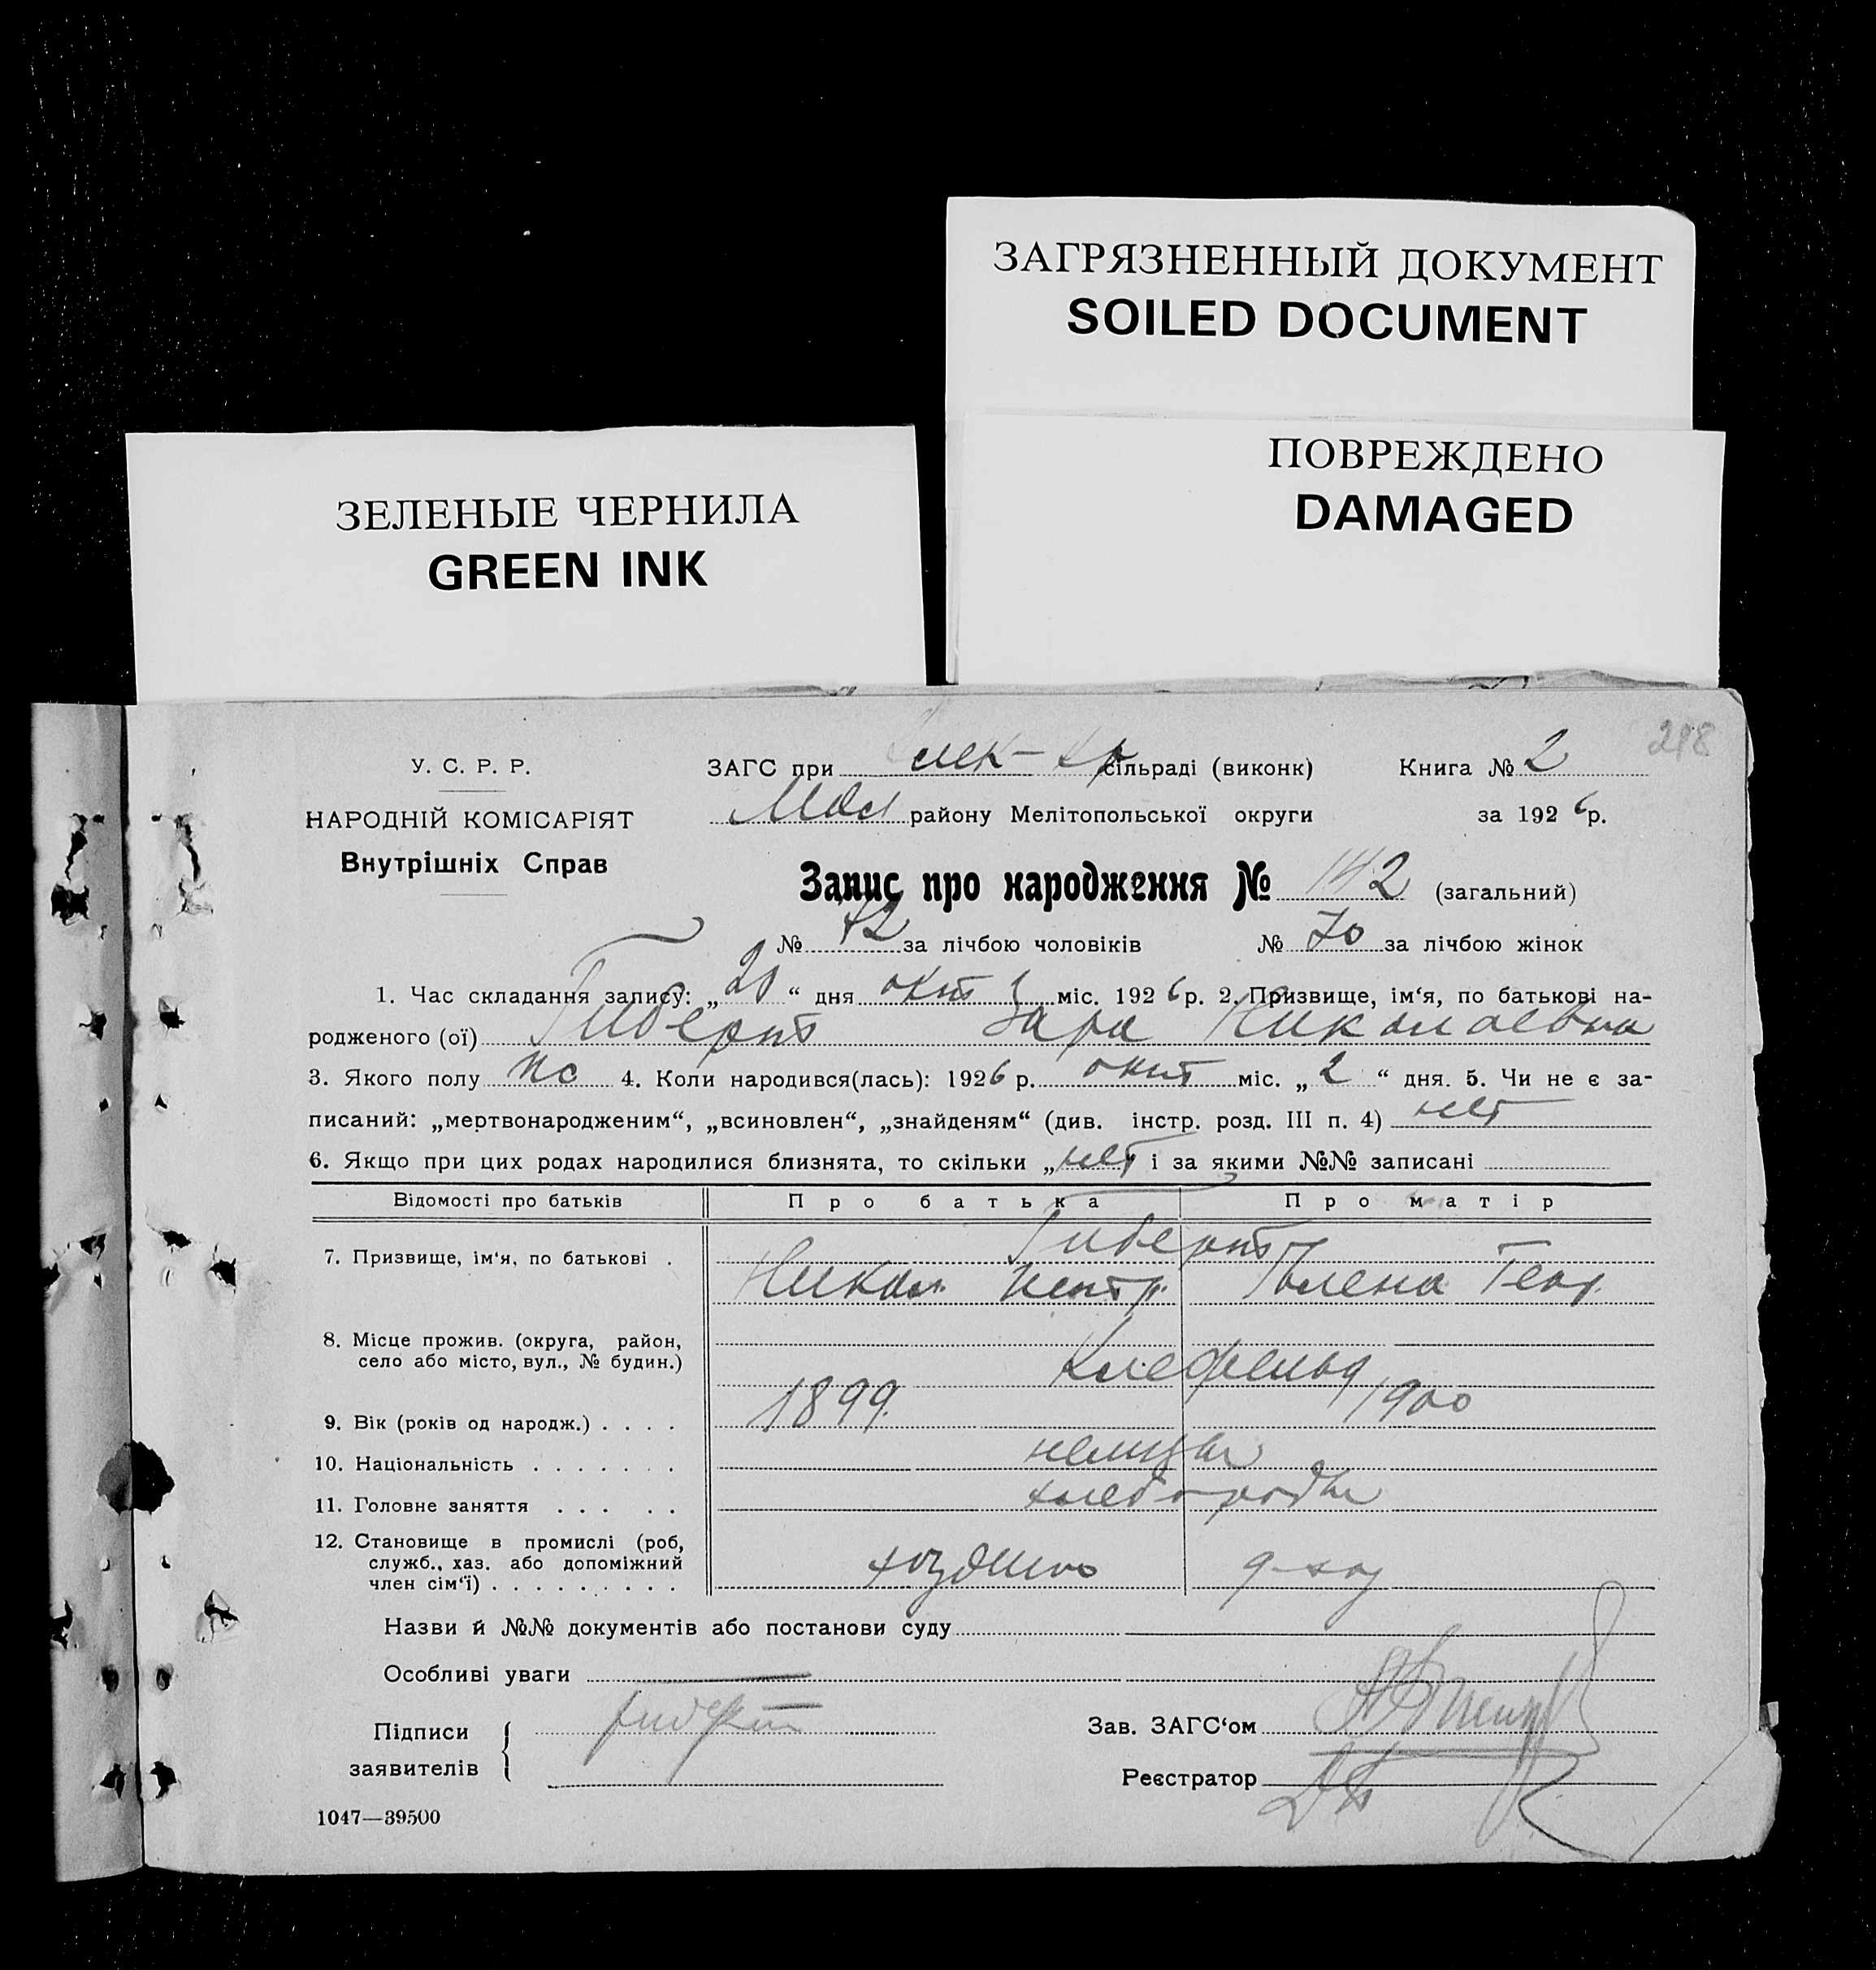 ЗАГРЯЗНЕННЫЙ ДОКУМЕНТ
SOILED DOCUMENT
ПОВРЕЖДЕНО
DAMAGED
ЗЕЛЕНЫЕ ЧЕРНИЛА
GREEN INK
218
У. С. Р. Р.
НАРОДНІЙ КОМІСАРІЯТ
Внутрішніх Справ
ЗАГС при сільраді (виконк) Книга № 2
Мол району Мелітопольської округи за 1926 р.
Запис про народження № 142 (загальний)
№ 72 за лічбою чоловіків № 70 за лічбою жінок
1. Час складання запису: „20“ дня окт міс. 1926 р. 2. Призвище, ім‘я, по батькові на-
родженого (ої) Гиберт Зара Николаевна
3. Якого полу жс 4. Коли народився(лась): 1926 р. окт міс. „2“ дня. 5. Чи не є за-
писаний: „мертвонародженим“, „всиновлен“, „знайденям“ (див. інстр. розд. III п. 4) нет
6. Якщо при цих родах народилися близнята, то скільки „нет і за якими №№ записані
Відомості про батьків Про батька Про матір
7. Призвище, ім‘я, по батькові . Гиберт
Никол. Петр. Елена Геор.
8. Місце прожив. (округа, район,
село або місто, вул., № будин.) Клефельд
9. Вік (років од народж.) . . . . 1899. 1900
10. Національність . . . . . . . немцы
11. Головне заняття . . . . . хлебороды
12. Становище в промислі (роб,
служб., хаз. або допоміжний
член сім‘ї) . . . . . . . . .
Назви й №№ документів або постанови суду
Особливі уваги
Підписи Гиберт
заявителів
Зав. ЗАГС‘ом
Реєстратор
1047—39500